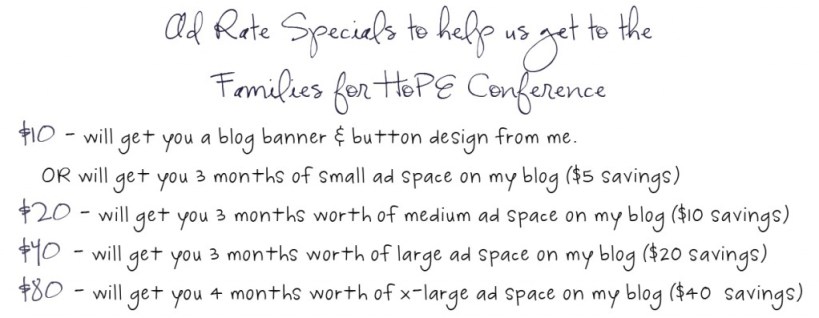 Ad Rate Specials to help us get to the
Families for HoPE Conference
$10 - will get you a blog banner & button design from me.
OR will get you 3 months of small ad space on my blog ($5 savings)
$20 - will get you 3 months worth of medium ad space on my blog ($10 savings)
$40 - will get you 3 months worth of large ad space on my blog ($20 savings)
$80 - will get you 4 months worth of x-large ad space on my blog ($40 savings)